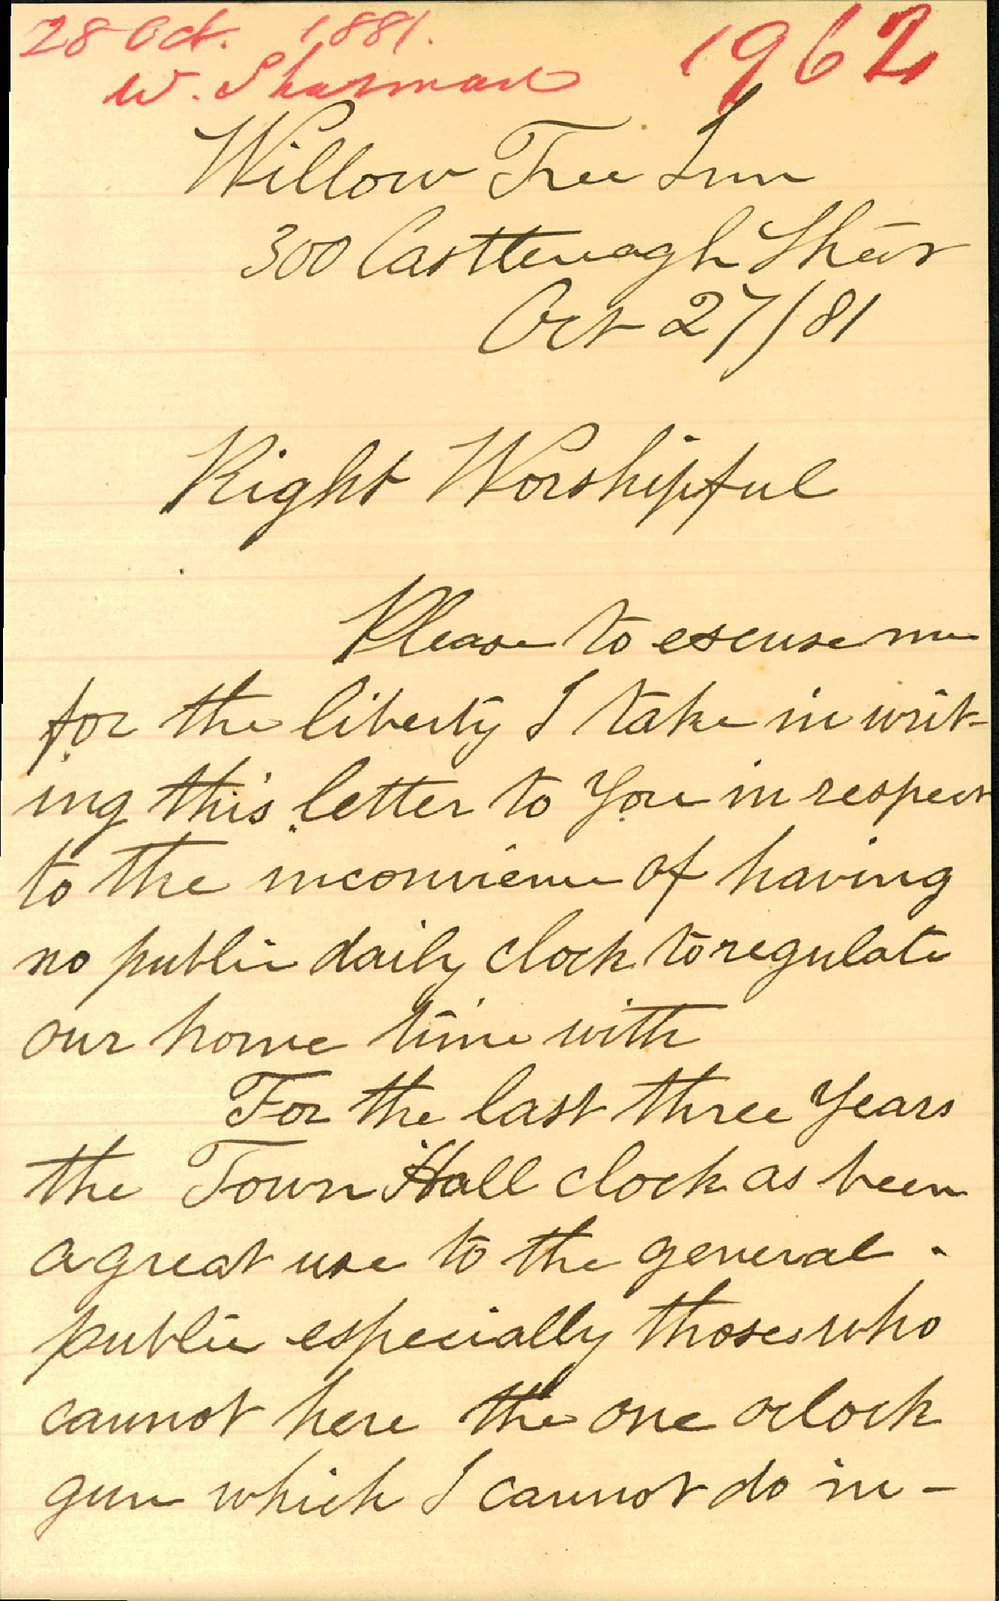 28 Oct. 1881. 1962
W. Sharman
Willow Tree Inn
300 Casttereagh Street
Oct 27/81
Right Worshipful
Please to escuse me
for the liberty I take in writ-
ing this letter to You in respect
to the inconvience of having
no public daily clock to regulate
our home time with
For the last three Years
the Town Hall clock as been
a great use to the general
public especially those who
cannot here the one oclock
gun which I cannot do in -